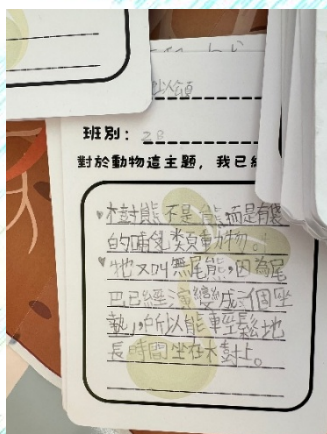 以領
班別：2B
對於動物這主題，我已經
樹熊不是熊而是有袋
的哺乳類動物。
牠又叫無尾熊，因為尾
巴已經演變成一個坐
墊，所以能輕鬆地
長時間坐在木對上。